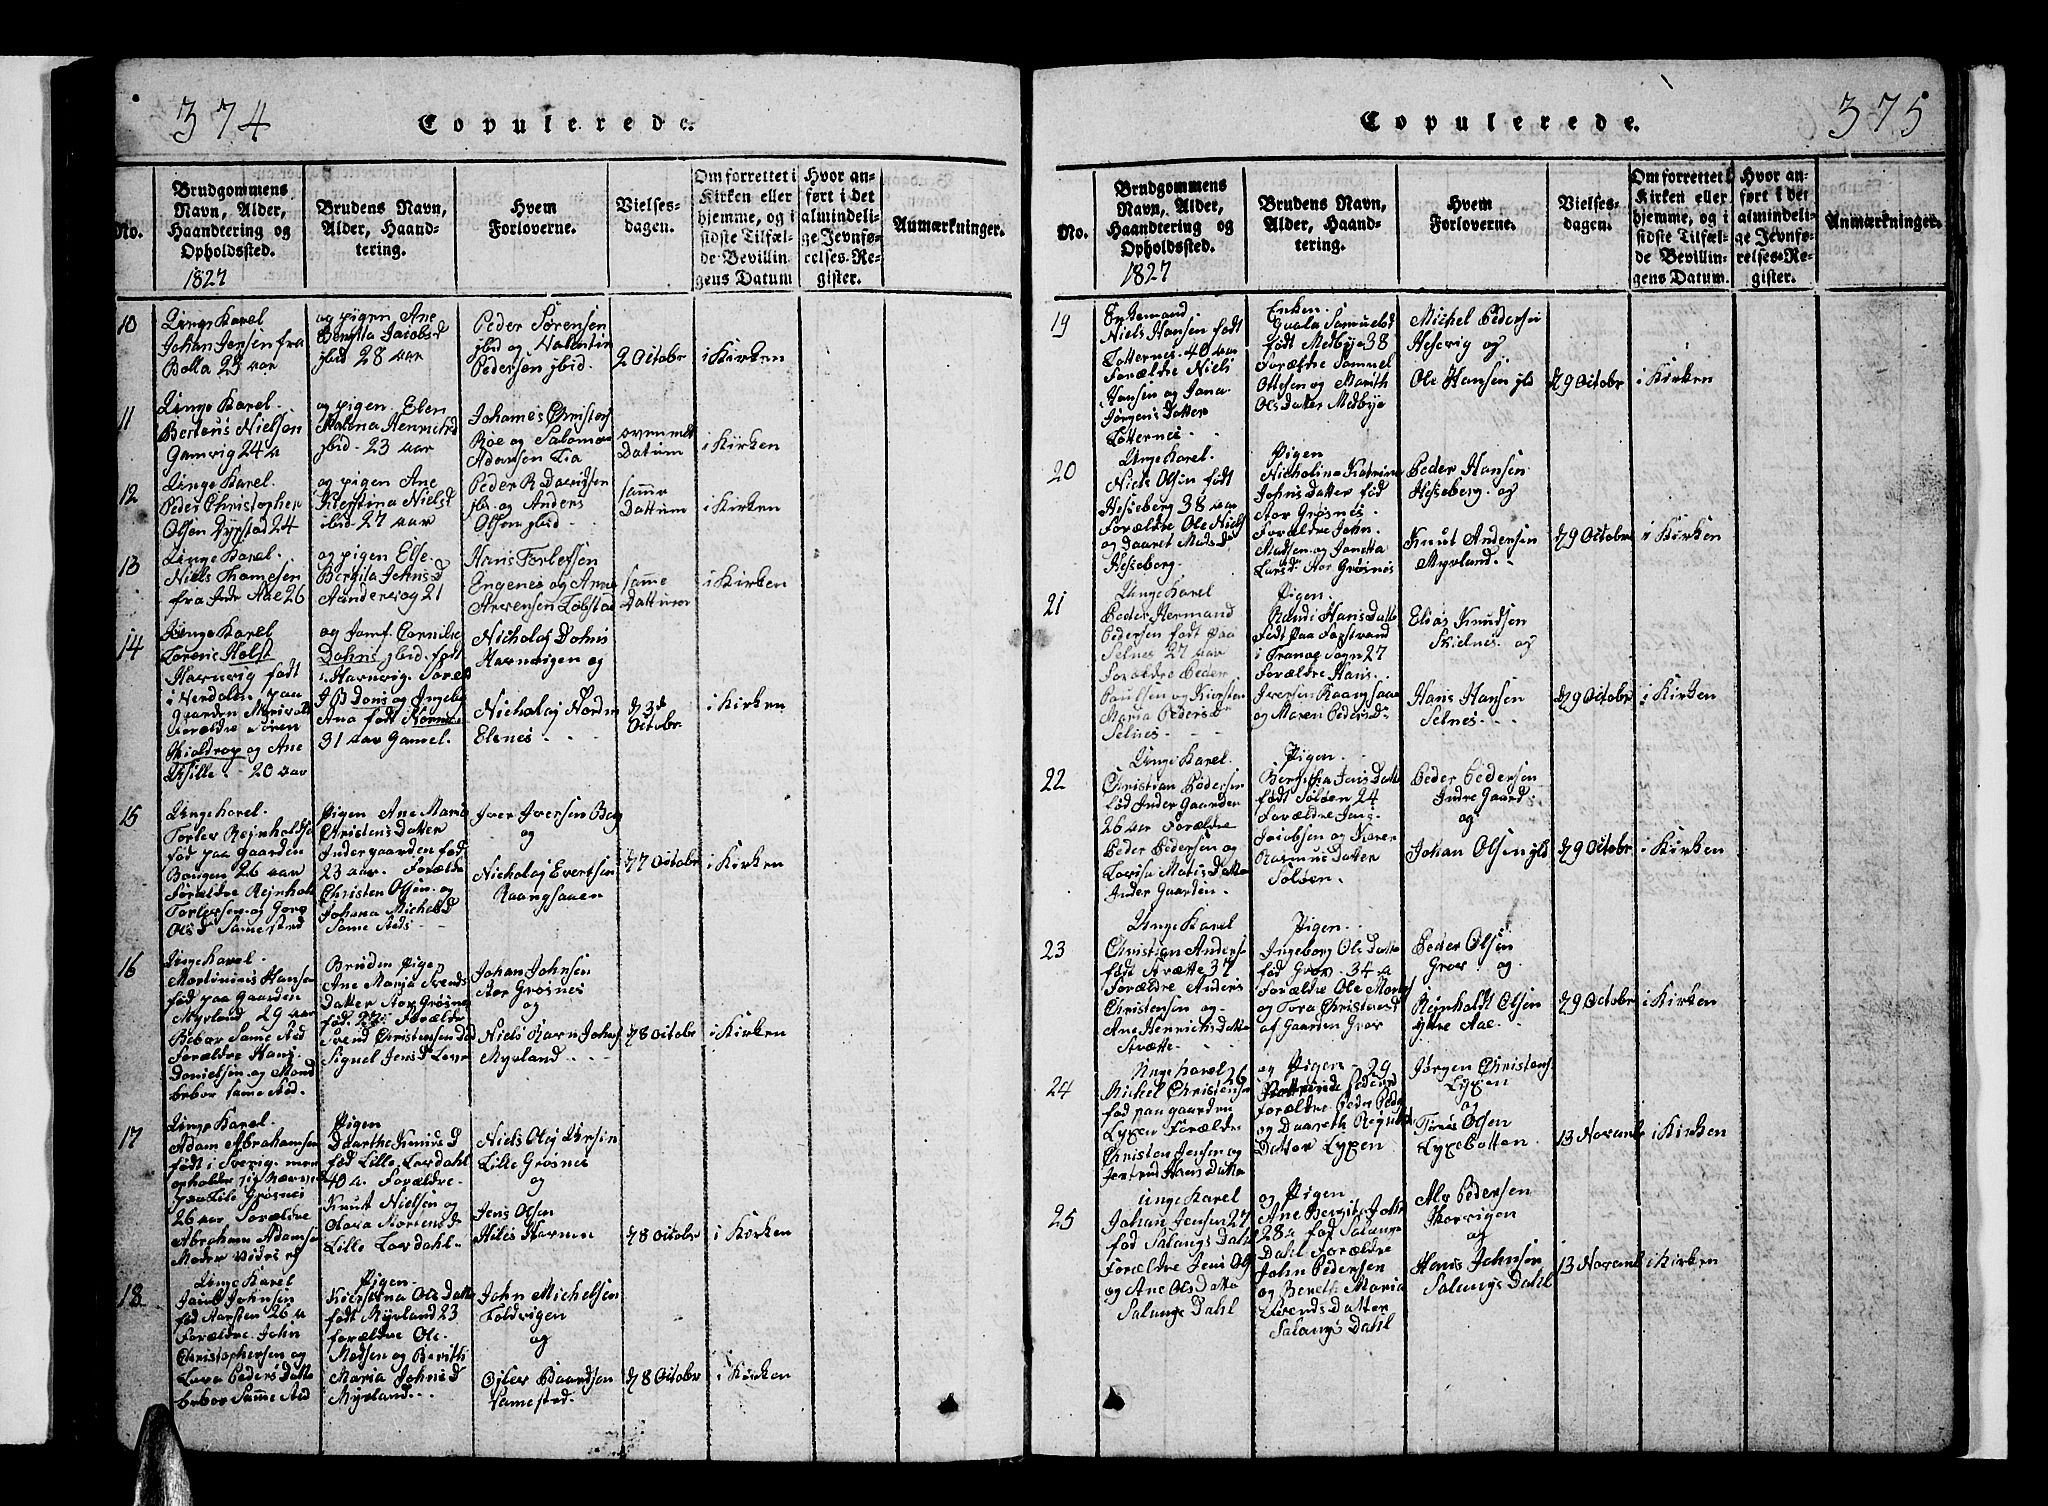 374
Copulerede.
No.
Brudgommens
Navn, Alder,
Haandtering og
Opholdssted.
1827
Brudens Navn,
Alder, Haand-
tering.
Hvem
Forloverne.
Vielses-
dagen.
Om forrettet i
Kirken eller
hjemme, og i
sidste Tilfæl-
de Bevillin-
gens Datum
Hvor an-
ført i det
almindeli-
ge Jevnfø-
relses-Re-
gister.
Anmærkninger.
10
Unge Karel
Johan Jensen fra
Bolla 23 aar
og pigen Ane
Jacobsd
ibid 28 aar
Peder Sørensen
ibid og Valentin
Pedersen ibid.
2 Octobr
i Kirken
11
Unge Karel.
Berteus Nielsen
Gamvig 24 a
og pigen. Elen
Henrichsd
ibid. 23 aar
Johanes Christofs
Roe og Salomon
Adamsen Lia
ovenmelt
Datum
i Kirken
12
Unge Karel.
Peder Christopher
Olsen 24
og pigen Ane
Kierstina Nielsd
ibid 27 aar
Peder R Davidsen
ibr. og Anders
Olsen ibid.
samme
Dattum
i Kirken
13
Unge Karel.
Niels Thomesen
fra Indr Aae 26
og pigen Else
Bergita Johnsd
21
Hans Torlefsen
Engenes og Arne
samme
Dattum
i Kirken
14
Unge Karel
Holst
Havnvig født
i Nordalen paa
Gaarden
Forældre Søren
og Ane
20 aar
og Jomf. Cornilia
Dahns ibid. født
i Havnvig. Foræl
og Ingeb
Ana født
31 aar Gamel.
Nicholay Dohns
Havnvigen og
Nicholay Nordm
Elsnes
d 3d
Octobr
i Kirken
15
Unge karel.
Torlev Rejnholds
fød paa gaarden
Bangen 26 aar
Forældre Rejnhold
Torlevsen og
Olsd Samested
Pigen Ane Maria
Christens Datter
Indergaarden fød
23 aar. Forældre
Christen Olsen og
Johana Michelsd
Same Steds
Iver Iversen Berg
og
Nicholaj Evertsen
Raangsaaen
d 7 Octobr
i Kirken
16
Unge karel.
Mortinius Hansen
fød paa Gaarden
Myrland 29 aar
Bebor Same Sted
Forældre Hans
Danielsen og
bebor same sted.
Bruden pigen
Ane Maria Svends
Datter Stor Grøsnes
fød. 27. Forældre
Svend Christensen
Signel Jensd
Johan Johnsen
Stor Grøsnes
og
Niels Johns
Myrland
d 8 Octobr
i Kirken
17
Unge Karel.
Adam Abrahamsen
født i Sverig. men
opholder sig
paa Lile Grøsnes
26 aar Forældre
Abraham Adamsen
Moder
Pigen
Daarthe Knuds D
fød Lille Lavdahl
40 a. Forældre.
Knut Nielsen og
Mortensd
Lille Lavdahl.
Niels Olaj
Lille Grøsnes
og
Jens Olsen
Hilles Hamnen
d 8 Octobr
i Kirken
18
Unge Karel
Jacob Johnsen
fød Aarsten 26 a
Forældre John
Christophersen og
Lava Peders Datter
bebor Samme Sted
Pigen.
Kierstina Ols Datter
født Myrland 23
forældre Ole
Madsen og Berith
Maria Johns d
Myrland
John Michelsen
Foldvigen
og
Baardsen
Samested.
d 8 Octobr
i Kirken
375
Copulerede.
No.
Brudgommens
Navn, Alder,
Haandtering og
Opholdssted.
1827
Brudens Navn,
Alder, Haand-
tering.
Hvem
Forloverne.
Vielses-
dagen.
Om forrettet i
Kirken eller
hjemme, og i
sidste Tilfæl-
de Bevillin-
gens Datum.
Hvor an-
ført i det
almindeli-
ge Jevnfø-
relses-Re-
gister.
Anmærkninger.
19
Enkemand
Niels Hansen født
Totternes. 40 aar
Forældre Niels
Hansen og Jana
Jørgens Datter
Totternes
Enken.
Samuelsd
født Medbye 38
Forældre Samuel
Ottesen og Marith
Ols Datter Medbye
Michel Pedersen
Hesevig og
Ole Hansen
d 9 Octobr
i Kirken
20
Unge Karel.
Niels Olsen født
Hesseberg 38 aar
Forældre Ole Niels
og Daaret Madsd
Hesseberg.
Pigen
Nicholina Katrine
Johns Datter fød
Stor Grøsnes
Forældre John
Madsen og Janetta
Larsd. Stor Grøsnes
Peder Hansen
Hesseberg. og
Knut Andersen
Myrland.
d 9 Octobr
i Kirken
21
Unge Karel
Peder Hermand
Pedersen født paa
Selnes 27 aar
Forældre Peder
Paulsen og Kiersten
Maria Pedersd
Selnes
Pigen.
Rande Hans Datter
født paa
i Tranøe Sogn 27
Forældre Hans
Iversen Raangsaae
og Maren Pedersd
Elias Knudsen
Skielnes. og
Hans Hansen
Selnes
d 9 Octobr
i Kirken
22
Unge Karel
Christian Pedersen
fød Inder Gaarden
26 aar Forældre
Peder Pedersen og
Lovisa Matis Datter
Inder Gaarden.
Pigen
Bergitha Jens Datter
født Søløen 24
Forældre Jens
Jacobsen og Karen
Rasmus Datter
Søløen.
Peder Pedersen
Indre Gaard.
og
Johan Olsen
d 9 Octobr
i Kirken
23
Unge Karel
Christian Anders
født Strætte 37
Forældre Anders
Christensen og
Ane Henrichs Datter
Strætte
Pigen
Ingeborg Ols Datter
fød Grov. 34 a
Forældre Ole
og Tora Christensd
af Gaarden Grov
Peder Olsen
Grov og
Rejnholdt Olsen
ytre Aae.
d 9 Octobr
i Kirken
24
Unge karel 26
Michel Christensen
fød paa gaarden
Lyxen Forældre
Christen Jensen og
Datter
og Pigen 29
Pedersd
forældre Peder Peder
og Daareth
Datter Lyxen
Jørgen Christens
Lyxen
og
Tøres Olsen
Lyxebotten
13 Novemb
i Kirken
25
Unge Karel
Johan Jensen 27
fød Salangs Dahl
Forældre Jens Ols
og Ane Ols Datter
Salangs Dahl
og Pigen
Ane Bergite Johns
28 a fød Salangs
Dahl Forældre
John Pedersen
og Bereth Maria
Svends Datter
Salangs Dahl
Alv Pedersen
og
Hans Johnsen
Salangs Dahl
13 Novemb
i Kirken